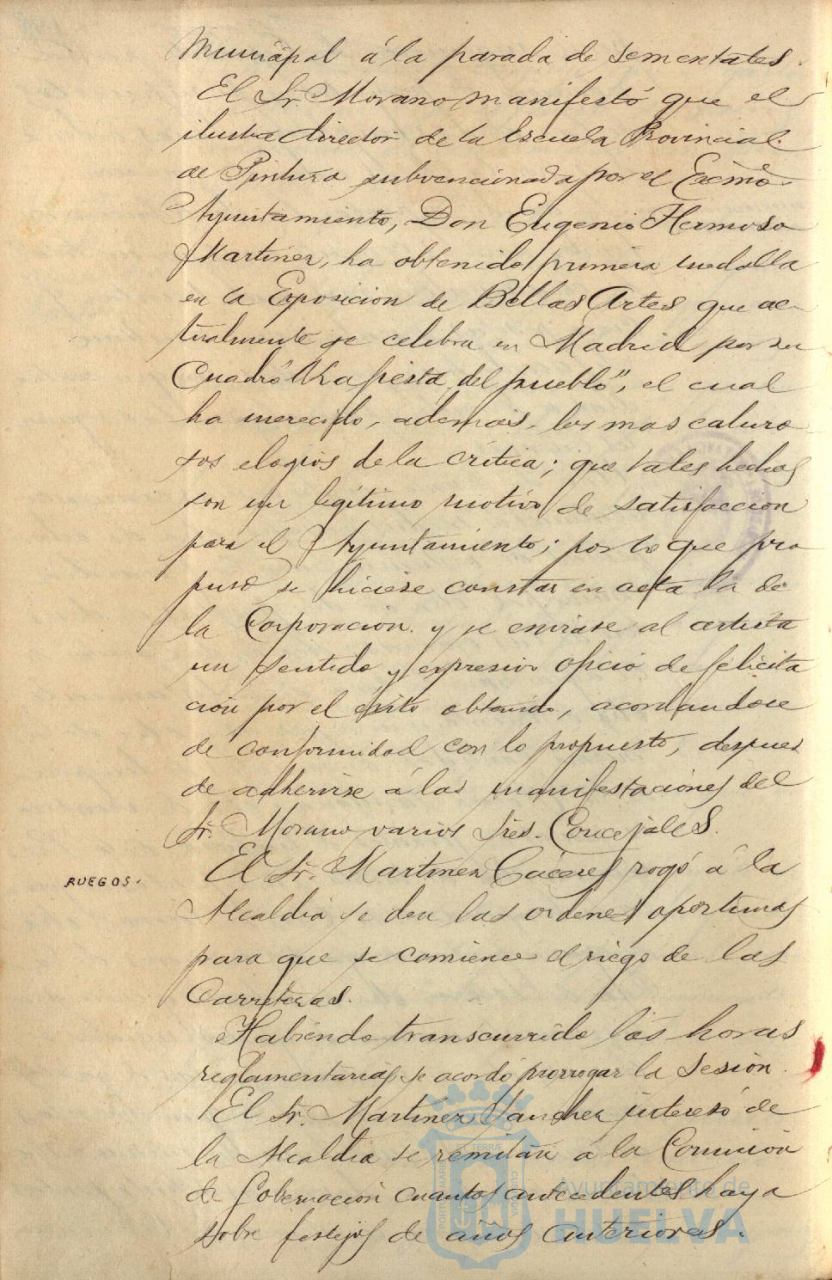 Municipal á la parada de sementales.
El Sr. Morano manifestó que el
ilustre director de la Escuela Provincial
de Pintura subvencionada por el Excmo.
Ayuntamiento, Don Eugenio Hermoso
Martinez, ha obtenido primera medalla
en la Exposicion de Bellas Artes que ac-
tualmente se celebra en Madrid por su
Cuadro "La fiesta del pueblo", el cual
ha merecido, además, los mas caluro
sos elogios de la crítica; que tales hechos
son un legítimo motivo de satisfaccion
para el Ayuntamiento; por lo que pro
puso se hiciese constar en acta la de
la Corporacion y se enviase al artista
un sentido y expresivo oficio de felicita
ción por el éxito obtenido, acordandose
de conformidad con lo propuesto, despues
de adherirse á las manifestaciones del
Sr. Morano varios Sres. Concejales.
RUEGOS.
El Sr. Martinez Cáceres rogó á la
Alcaldia se den las ordenes oportunas
para que se comience el riego de las
Carreteras.
Habiendo transcurrido las horas
reglamentarias, se acordó prorrogar la Sesión.
El Sr. Martinez Sanchez interesó de
la Alcaldia se remitan á la Comision
de Gobernacion cuantos antecedentes haya
sobre festejos de años anteriores.
Ayuntamiento de
HUELVA